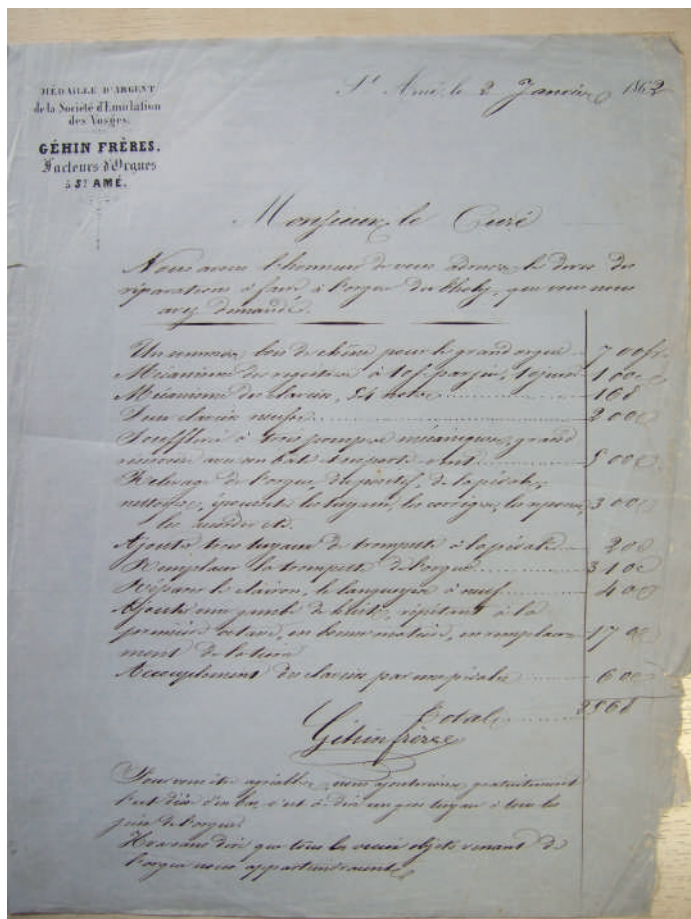 MÉDAILLE D'ARGENT
de la Société d'Emulation
des Vosges.
GÉHIN FRÈRES.
Facteurs d'Orgues
à St AMÉ.
St Amé, le 2 Janvier 1862
Monsieur le Curé
Nous avons l'honneur de vous adresser le devis des
réparations à faire à l'orgue de, que vous nous
avez demandé.
Un sommier, bois de chêne pour le grand orgue 700 fr
Mécanisme des registres à 10 f par jeu, 10 jeux 100
Mécanisme des claviers, 54 notes 168
Deux claviers neufs 200
Soufflerie à trois pompes mécaniques, grand
réservoir avec son bâti et porte-vent 500
Relevage de l'orgue, du positif, de la pédale,
nettoyer, les tuyaux, les corriger, les
les accorder etc. 300
Ajouter trois tuyaux de trompette à la pédale 20
Remplacer la trompette de l'orgue 310
Réparer le clairon, le langueyer à neuf 40
Ajouter une gambe de 8 pieds, répétant à la
première octave, en bonne matière, en remplace- 170
ment de la tierce
Accouplement des claviers par une pédale 60
Total 2568
Géhin frères
Pour vous être agréables, nous ajouterions gratuitement
l'ut dièse d'en bas, c'est à dire un gros tuyau à tous les
jeux de l'orgue.
dire que tous les vieux objets venant de
l'orgue nous appartiendraient.